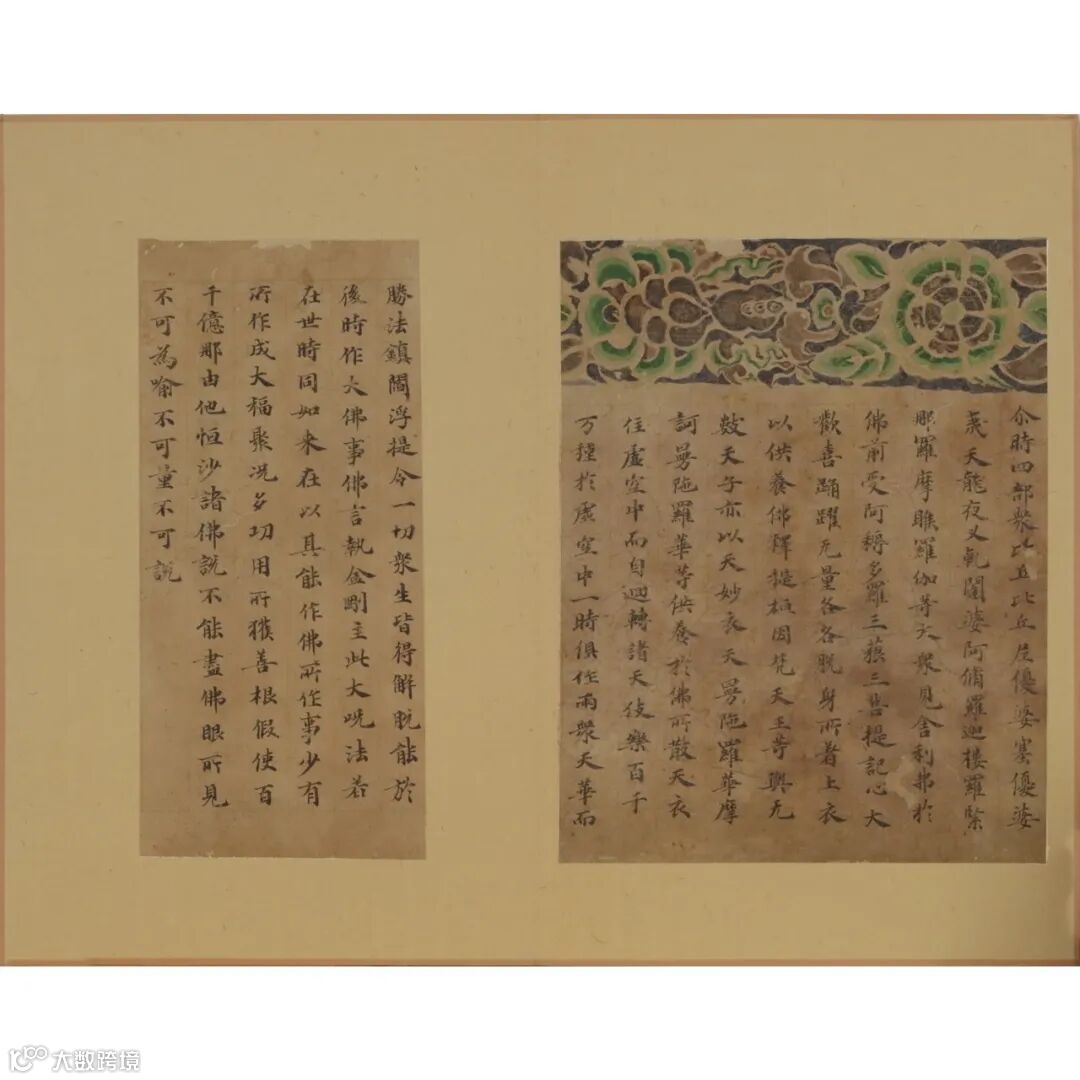 尒時四部衆比丘比丘尼優婆塞優婆
夷天龍夜叉乹闥婆阿脩羅迦樓羅緊
那羅摩睺羅伽等大衆見舍利弗於
佛前受阿耨多羅三藐三菩提記心大
歡喜踊躍无量各各脫身所着上衣
以供養佛釋提桓因梵天王等與无
數天子亦以天妙衣天曼陁羅華摩
訶曼陁羅華等供養於佛所散天衣
住虛空中而自迴轉諸天伎樂百千
万種於虛空中一時俱作雨衆天華而
勝法鎮閻浮提令一切衆生皆得解脫能於
後時作大佛事佛言執金剛主此大呪法若
在世時同如来在以具能作佛所作事少有
所作成大福聚况多功用所獲善根假使百
千億那由他恒沙諸佛說不能盡佛眼所見
不可為喻不可量不可說
大数跨境